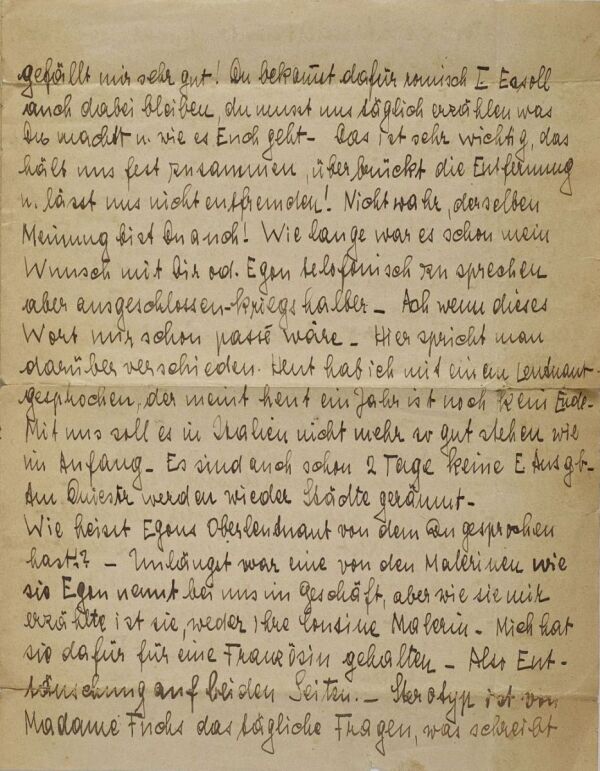 gefällt mir sehr gut! Du bekommst dafür römisch I Es soll
auch dabei bleiben, du musst uns täglich erzählen was
Du machst u. wie es Euch geht – Das ist sehr wichtig, das
hält uns fest zusammen, überbrückt die Entfernung
u. lässt uns nicht entfremden! Nicht wahr, derselben
Meinung bist Du auch! Wie lange war es schon mein
Wunsch mit Dir od. Egon telefonisch zu sprechen
aber ausgeschlossen – kriegshalber – Ach wenn dieses
Wort mir schon passé wäre – Hier spricht man
darüber verschieden. Heut hab ich mit einem Leutnant
gesprochen, der meint heut ein Jahr ist noch kein Ende –
Mit uns soll es in Italien nicht mehr so gut stehen wie
im Anfang – Es sind auch schon 2 Tage keine E Ausgb –
Am Dniestr werden wieder Städte geräumt –
Wie heisst Egons Oberleutnant von dem Du gesprochen
hast? – Unlängst war eine von den Malerinen wie
sie Egon nennt bei uns im Geschäft, aber wie sie mir
erzählte ist sie, weder ihre Cousine Malerin – Mich hat
sie dafür für eine Französin gehalten – Also Ent-
täuschung auf beiden Seiten. – Sterotyp ist von
Madame Fuchs das tägliche Fragen, was schreibt